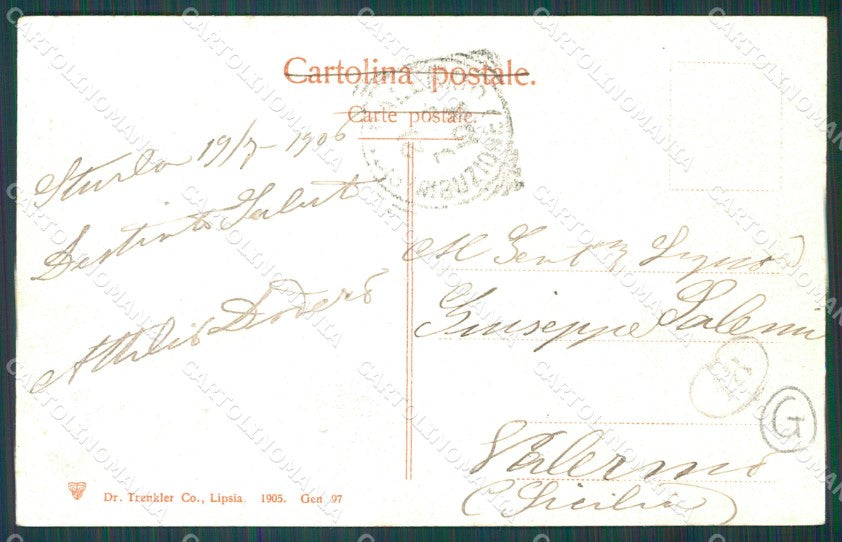 Cartolina postale.
Carte postale.
Sturla 19/7-1906
Distinti Saluti
Attilio Dodero
Al Gent.m Signor
Giuseppe Salemi
Palermo
(Sicilia)
G
Dr. Trenkler Co., Lipsia. 1905. Gen. 97
CARTOLINOMANIA